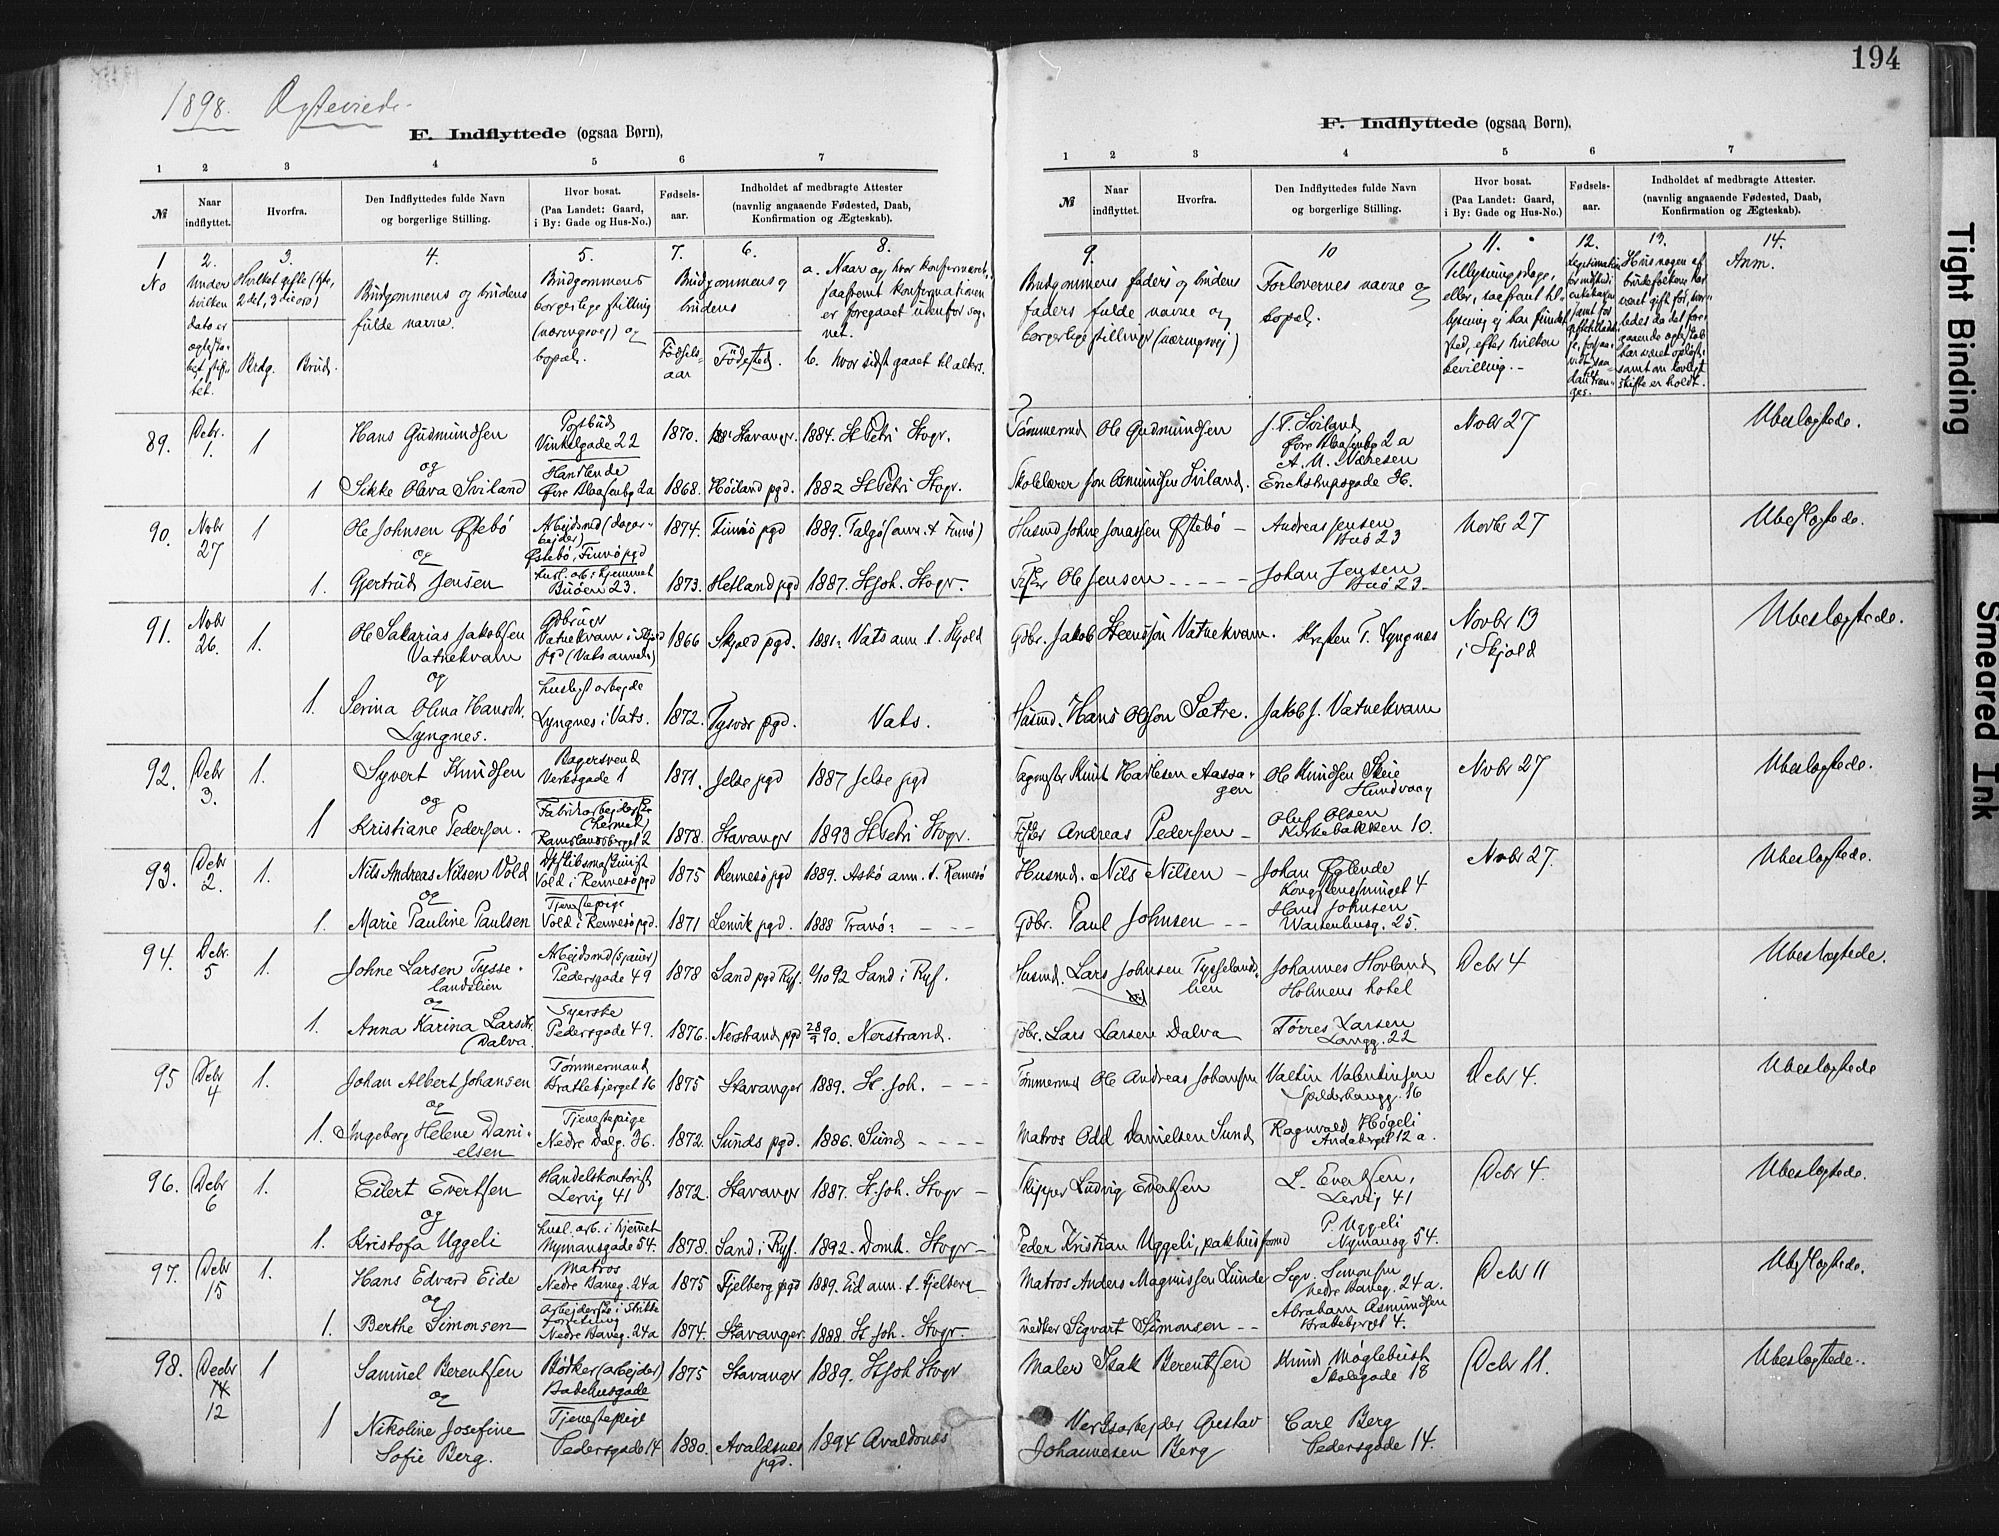 194
1898. Ægteviede.
F. Indflyttede (ogsaa Børn).
1 2 3 4 5 6 7
№
Naar indflyttet.
Hvorfra.
Den Indflyttedes fulde Navn og borgerlige Stilling.
Hvor bosat. (Paa Landet: Gaard, i By: Gade og Hus-No.)
Fødsels-aar.
Indholdet af medbragte Attester (navnlig angaaende Fødested, Daab, Konfirmation og Ægteskab).
1 No
2. Under hvilken dato er ægteskabet stiftet.
3. Hvilket gifte (1ste, 2det, 3die osv)
Brdg. Brud.
4. Brudgommens og brudens fulde navne.
5. Brudgommens borgerlige stilling (næringsvej) og bopæl.
7. 6. Brudgommens og brudens
Födsels-aar Födested.
8. a. Naar og hvor konfirmeret, saafremt konfirmationen er foregaaet udenfor sognet.
b. hvor sidst gaaet til alters.
89. Debr. 1. 1 Hans Gudmundsen Postbud Vinkelgade 22 1870. Stavanger. 1884. St Petri Stvgr.
og
1 Sikke Olava Sviland Handlende Øvre Blaasenbg 2a 1868. Höiland pgd. 1882 St Petri Stvgr.
90. Novbr 27 1 Ole Johnsen Østebö Arbejdsmd (dagarbejder) Østebö, Finnö pgd 1874. Finnö pgd 1889. Talgö (ann. t Finnö)
og
1. Gjertrud Jensen husl. arb. i hjemmet Buöen 23. 1873. Hetland pgd 1887. St Joh. Stvgr.
91. Nobr 26. 1. Ole Sakarias Jakobsen Vatnekvam Gdbruger Vatnekvam i Skjold pgd (Vats annex) 1866 Skjold pgd. 1881: Vats ann. t. Skjold
og
1. Serina Olina Hansdtr. Lyngnes. husligt arbejde Lyngnes i Vats. 1872. Tysvær pgd. Vats.
92. Debr 3. 1. Syvert Knudsen Bagersvend Verksgade 1 1871. Jelse pgd 1887 Jelse pgd
og
1 Kristiane Pedersen. Fabrikarbejderske (hermet) Ramslandsberget 2 1878. Stavanger 1893 St Petri Stvgr.
93. Debr 2. 1. Nils Andreas Nilsen Vold Vold i Rennesö pgd 1875 Rennesö pgd 1889. Askö ann. t. Rennesö
og
1. Marie Pauline Paulsen Tjenestepige Vold i Rennesö pgd. 1871 Lenvik pgd. 1888 Tranö:
94. Debr. 5 1. Johne Larsen Tysselandslien Arbejdsmd (sjauer) Pedersgade 49 1878 Sand pgd Ryf. 2/10 92 Sand i Ryf.
og
1. Anna Karina Larsdtr. Dalva. Syerske Pedersgade 49. 1876. Nerstrand pgd 28/9 90. Nerstrand.
95 Debr 4 1. Johan Albert Johansen Tömmermand Brattebjerget 16 1875 Stavanger 1889. St. Joh.
og
1. Ingeborg Helene Danielsen Tjenestepige Nedre Dalg. 36. 1872. Sunds pgd. 1886. Sund
96. Debr 6 1. Eilert Evertsen Handelskontorist Lervig 41 1872. Stavanger 1887. St. Joh. Stvgr
og
1. Kristofa Uggeli husl. arb. i hjemmet Nymansgade 54. 1878. Sand i Ryf. 1892. Domk. Stvgr
97. Debr 15 1. Hans Edvard Eide Matros Nedre Baneg. 24a 1875 Fjelberg pgd 1889. Eid ann. t. Fjelberg
og
1. Berthe Simonsen Arbejderske i forretning Nedre Baneg. 24a 1874. Stavanger. 1888. St Joh. Stvgr.
98. Decbr 14 12 1 Samuel Berentsen Bödker (arbejder) Badehusgade 1875 Stavanger 1889. St Joh Stvgr
og
1 Nikoline Josefine Sofie Berg. Tjenestepige Pedersgade 14 1880. Avaldsnes pgd. 1894 Avaldsnes
F. Indflyttede (ogsaa Børn).
1 2 3 4 5 6 7
№
Naar indflyttet.
Hvorfra.
Den Indflyttedes fulde Navn og borgerlige Stilling.
Hvor bosat. (Paa Landet: Gaard, i By: Gade og Hus-No.)
Fødsels-aar.
Indholdet af medbragte Attester. (navnlig angaaende Fødested, Daab, Konfirmation og Ægteskab).
9. Brudgommens faders og brudens faders fulde navne og borgerlige stilling (næringsvej)
10 Forlovernes navne og bopæl.
11. Tillysningsdage, eller, saafremt tillysning ej har fundet sted, efter hvilken bevilling.
12.
13. Hvis nogen af brudefolkene har været gift för, hvorledes da det foregaaende ægteskab har været oplöst, samt om lovligt skifte er holdt.
14. Anm.
Tömmermd Ole Gudmundsen J. T. Sviland Øvre Blaasenbg 2a Nobr 27 Ubeslægtede.
A. M. Næresen
Skolelærer Jon Asmundsen Sviland. Erichstrupsgade 36.
Husmd Johne Jonassen Østebö Andreas Jensen Buö 23 Novbr 27 Ubeslægtede.
Fisker Ole Jensen Johan Jensen Buö 23
Gdbr. Jakob Steensen Vatnekvam. Kristen T. Lyngnes Novbr 13 i Skjold Ubeslægtede.
Husmd. Hans Olsen Sætre. Jakob J. Vatnekvam
Knut Aassagen Ole Knudsen Skeie Hundvaag Novbr 27 Ubeslægtede.
Fisker Andreas Pedersen Oluf Olsen Kirkebakken 10.
Husmd. Nils Nilsen Johan Øglende Kongstensminget 4 Novbr 27. Ubeslægtede.
Gdbr. Paul Johnsen Hans Johnsen 25.
Husmd. Lars Johnsen Tysselandslien Johannes Hovland Holmens hotel Debr 4 Ubeslægtede.
Gdbr. Lars Larsen Dalva Törres Larsen Langg. 22
Tömmermd Ole Andreas Johansen Valtin Valentinsen 16 Debr 4. Ubeslægtede
Matros Odd Danielsen Sund Ragnvald Högeli Andaberget 12a.
Skipper Ludvig Evertsen L. Evertsen, Lervig 41 Debr 4. Ubeslægtede.
Peder Kristian Uggeli, pakhusformd P. Uggeli Nymansg 54.
Matros Anders Magnussen Lunde Sigv. Simonsen Nedre Baneg. 24a. Debr 11 Ubeslægtede.
Sigvart Simonsen Abraham Asmundsen Brattebjerget 4.
Maler Isak Berentsen Knud Möglebust Skolegade 18 Debr 11. Ubeslægtede.
Verksarbejder Gustav Johannesen Berg Carl Berg Pedersgade 14.
Tight Binding
Smeared Ink